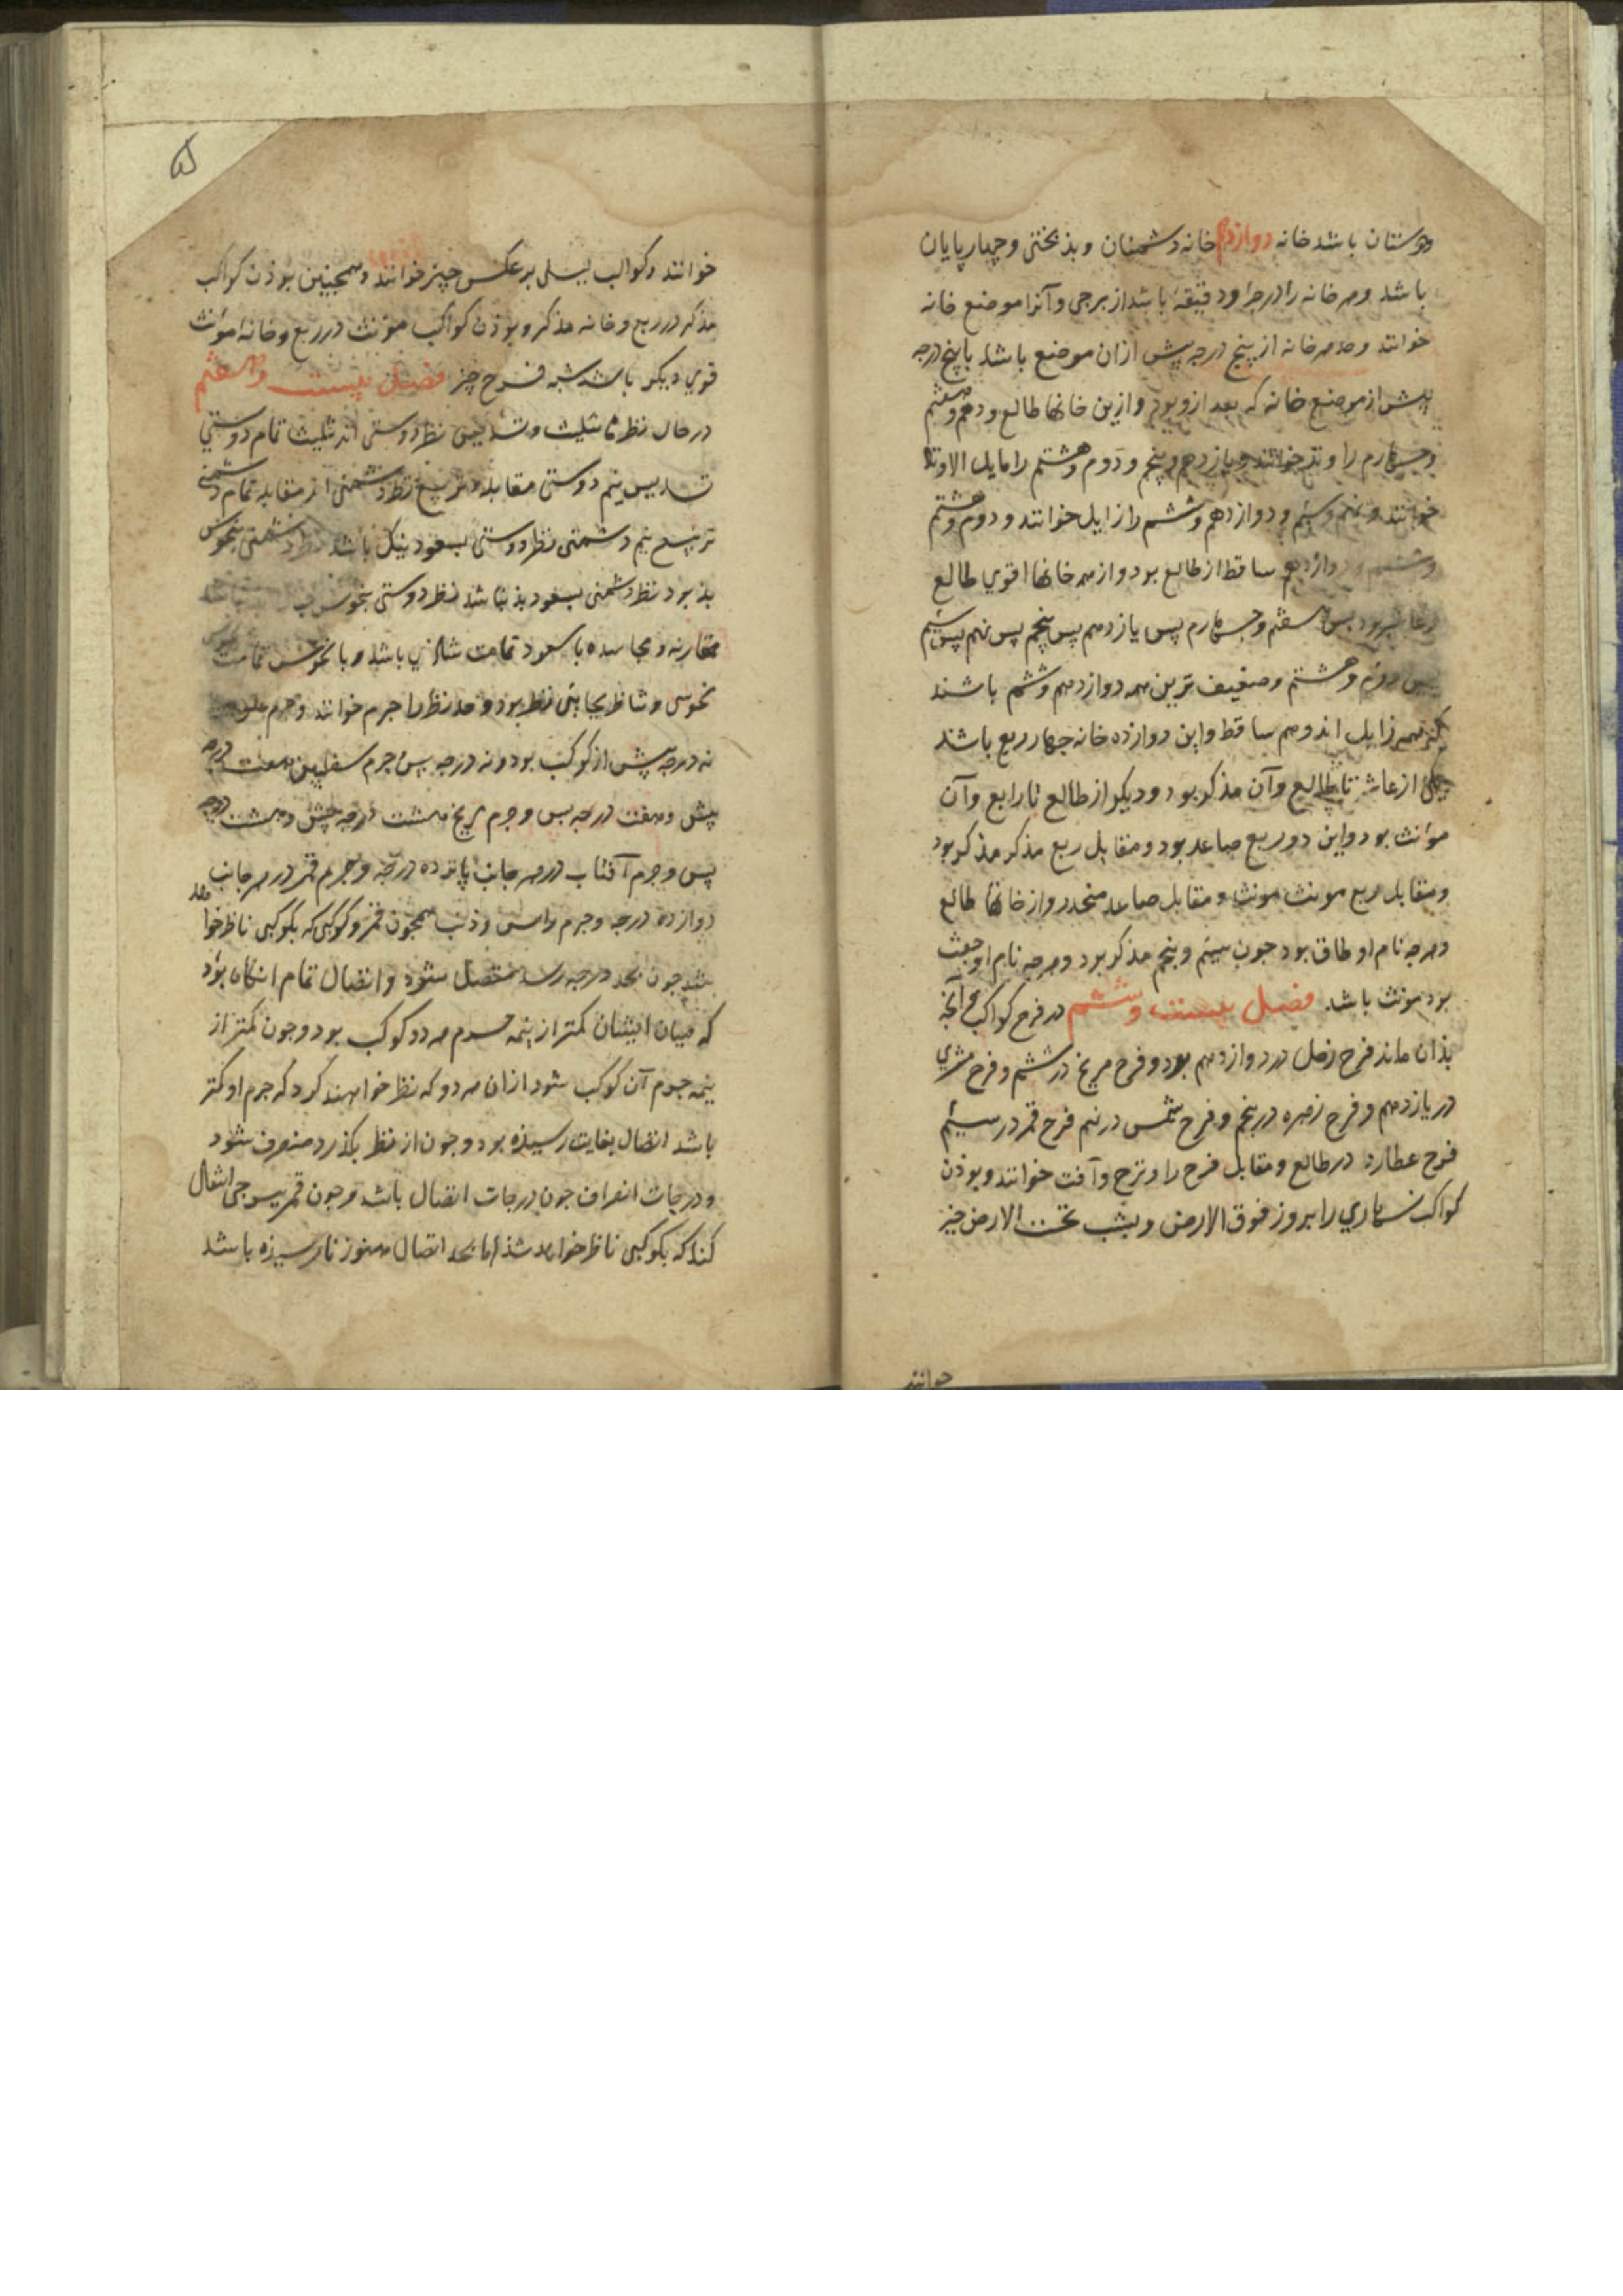 دوستان باشد خانه دوازدهم خانه دشمنان و بذبختی و چهارپایان
باشد و هر خانه را درجه و دقیقه باشد از برجی و آنرا موضع خانه
خوانند و حد هر خانه از پنج درجه پیش ازان موضع باشد با پنج درجه
پیش از موضع خانه که بعد ازو بود و ازین خانها طالع و دهم و هفتم
و چهارم را وتد خوانند و یازدهم و پنجم و دوم و هشتم را مایل الاوتاد
خوانند و نهم و سیم و دوازدهم و ششم را زایل خوانند و دوم و هشتم
و ششم و دوازدهم ساقط از طالع بود و از همه خانها اقوی طالع
و عاشر بود پس هفتم و چهارم پس یازدهم پس پنجم پس نهم پس سیم
پس دوم و هشتم و ضعیف ترین همه دوازدهم و ششم باشند
زایل اند و هم ساقط و این دوازده خانه چهار ربع باشند
یکی از عاشر تا طالع و آن مذکر بود و دیکر از طالع تا رابع و آن
مؤنث بود و این دو ربع صاعد بود و مقابل ربع مذکر مذکر بود
و مقابل ربع مونث مونث و مقابل صاعد منحدر و از خانها طالع
و هرچه نام او طاق بود جون سیم و پنجم مذکر بود و هرچه نام او جفت
بود مونث باشد. فصل بیست و ششم در فرح کواکب و آنچه
بذان ماند فرح زحل در دوازدهم بود و فرح مریخ در ششم و فرح مشتری
در یازدهم و فرح زهره در پنجم و فرح شمس در نهم فرح قمر در سیم
فرح عطارد در طالع و مقابل فرح را و ترح و آفت خوانند و بوذن
کواکب نهاری را بروز فوق الارض و بشب تحت الارض حیز
خوانند
خوانند و کواکب لیلی بر عکس حیز خوانند و همچنین بوذن کواکب
مذکر در ربع و خانه مذکر و بوذن کواکب مؤنث در ربع و خانه مؤنث
قوی دیکر باشد شبه فرح حیز فصل بیست و هفتم
در حال نظرها تثلیث و تسدیس نظر دوستی اند تثلیث تمام دوستی
تسدیس نیم دوستی مقابله و تربیع نظر دشمنی اند مقابله تمام دشمنی
تربیع نیم دشمنی نظر دوستی بسعود نیک باشد نظر دشمنی بنحوس
بذ بود نظر دشمنی بسعود بذ نباشد نظر دوستی بنحوس
مقارنه و مجاسده با سعود تمامت باشد و با نحوس تمامت
نحوسی و تناظر بجای نظر بود و حد نظر را جرم خوانند و جرم علوی
نه درجه پیش از کوکب بود و نه درجه پس و جرم سفلیین هفت درجه
پیش و هفت درجه پس و جرم مریخ هشت درجه پیش و هشت درجه
پس و جرم آفتاب در هر جانب پانزده درجه و جرم قمر در هر جانب
دوازده درجه و جرم راس و ذنب همچون قمر و کوکبی که بکوکبی ناظر خواهد
شد جون بحد درجه رسد متصل شود و اتصال تمام انکاه بود
که میان ایشان کمتر از نیمه جرم هر دو کوکب بود و جون کمتر از
نیمه جرم آن کوکب شود ازان هر دو که نظر خواهند کرد که جرم او کمتر
باشد اتصال بغایت رسیذه بود و جون از نظر بکذرد منصرف شود
و درجات انصراف جون درجات اتصال باشد و جون قمر ببرجی انتقال
کند که بکوکبی ناظر خواهد شذ اما بحد اتصال هنوز نارسیذه باشد